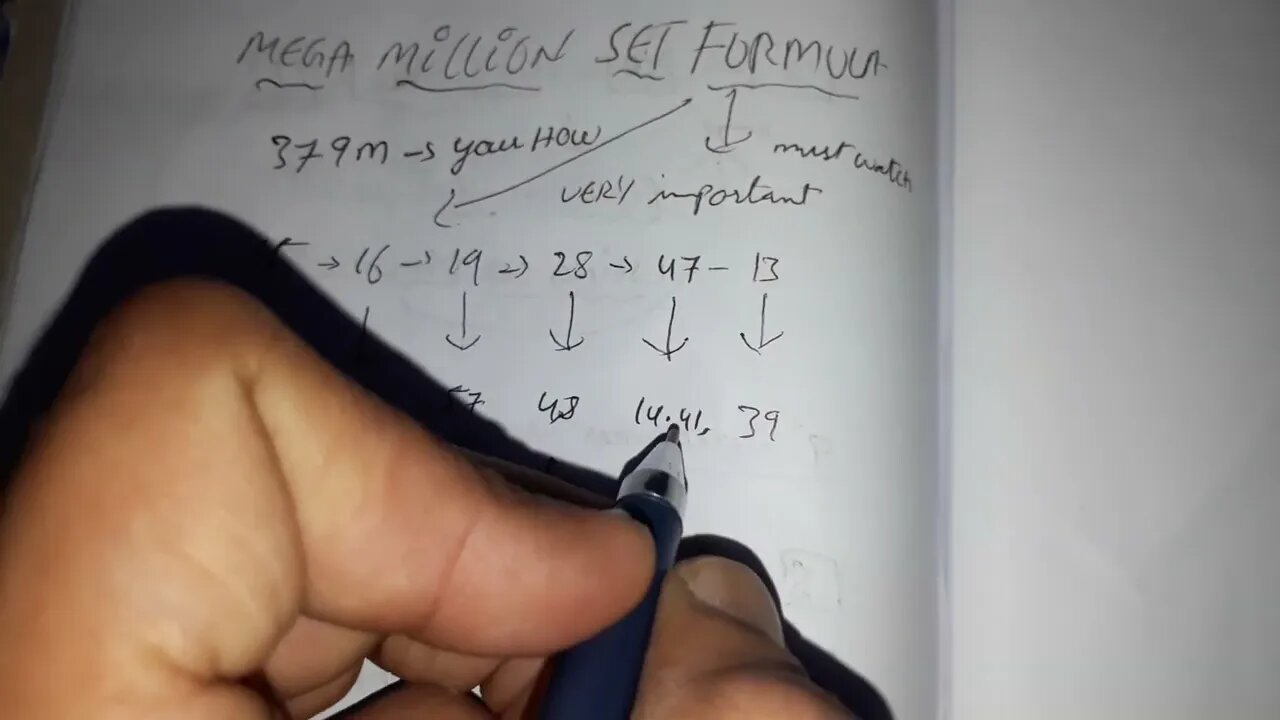 MEGA MILLION SET FORMULA
379m → you HOW
must watch
VERY important
→ 16 → 19 → 28 → 47 – 13
48 14.41, 39